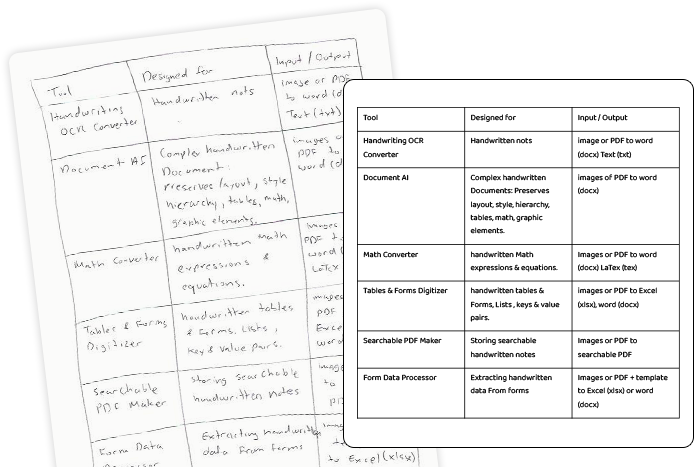 Tool
Designed for
Input / Output
Handwriting
OCR Converter
Handwritten nots
image or PDF
to word (d
Text (txt)
Document AI
Complex handwritten
Document:
preserves layout, style
hierarchy, tables, math,
graphic elements.
images o
PDF to
word (d
Math Converter
handwritten Math
expressions &
equations.
images
PDF t
word (
LaTex
Tables & Forms
Digitizer
handwritten tables
& Forms. Lists,
Key & Value pairs.
images
PDF
Exce
word
Searchable
PDF Maker
Storing searchable
handwritten notes
imag
to
P
Form Data
Extracting handwritten
data From forms
imag
t
to Excel (xlsx)
Tool
Designed for
Input / Output
Handwriting OCR
Converter
Handwritten nots
image or PDF to word
(docx) Text (txt)
Document AI
Complex handwritten
Documents: Preserves
layout, style, hierarchy,
tables, math, graphic
elements.
images of PDF to word
(docx)
Math Converter
handwritten Math
expressions & equations.
Images or PDF to word
(docx) LaTex (tex)
Tables & Forms Digitizer
handwritten tables &
Forms, Lists , keys & value
pairs.
images or PDF to Excel
(xlsx), word (docx)
Searchable PDF Maker
Storing searchable
handwritten notes
Images or PDF to
searchable PDF
Form Data Processor
Extracting handwritten
data From forms
Images or PDF + template
to Excel (xlsx) or word
(docx)